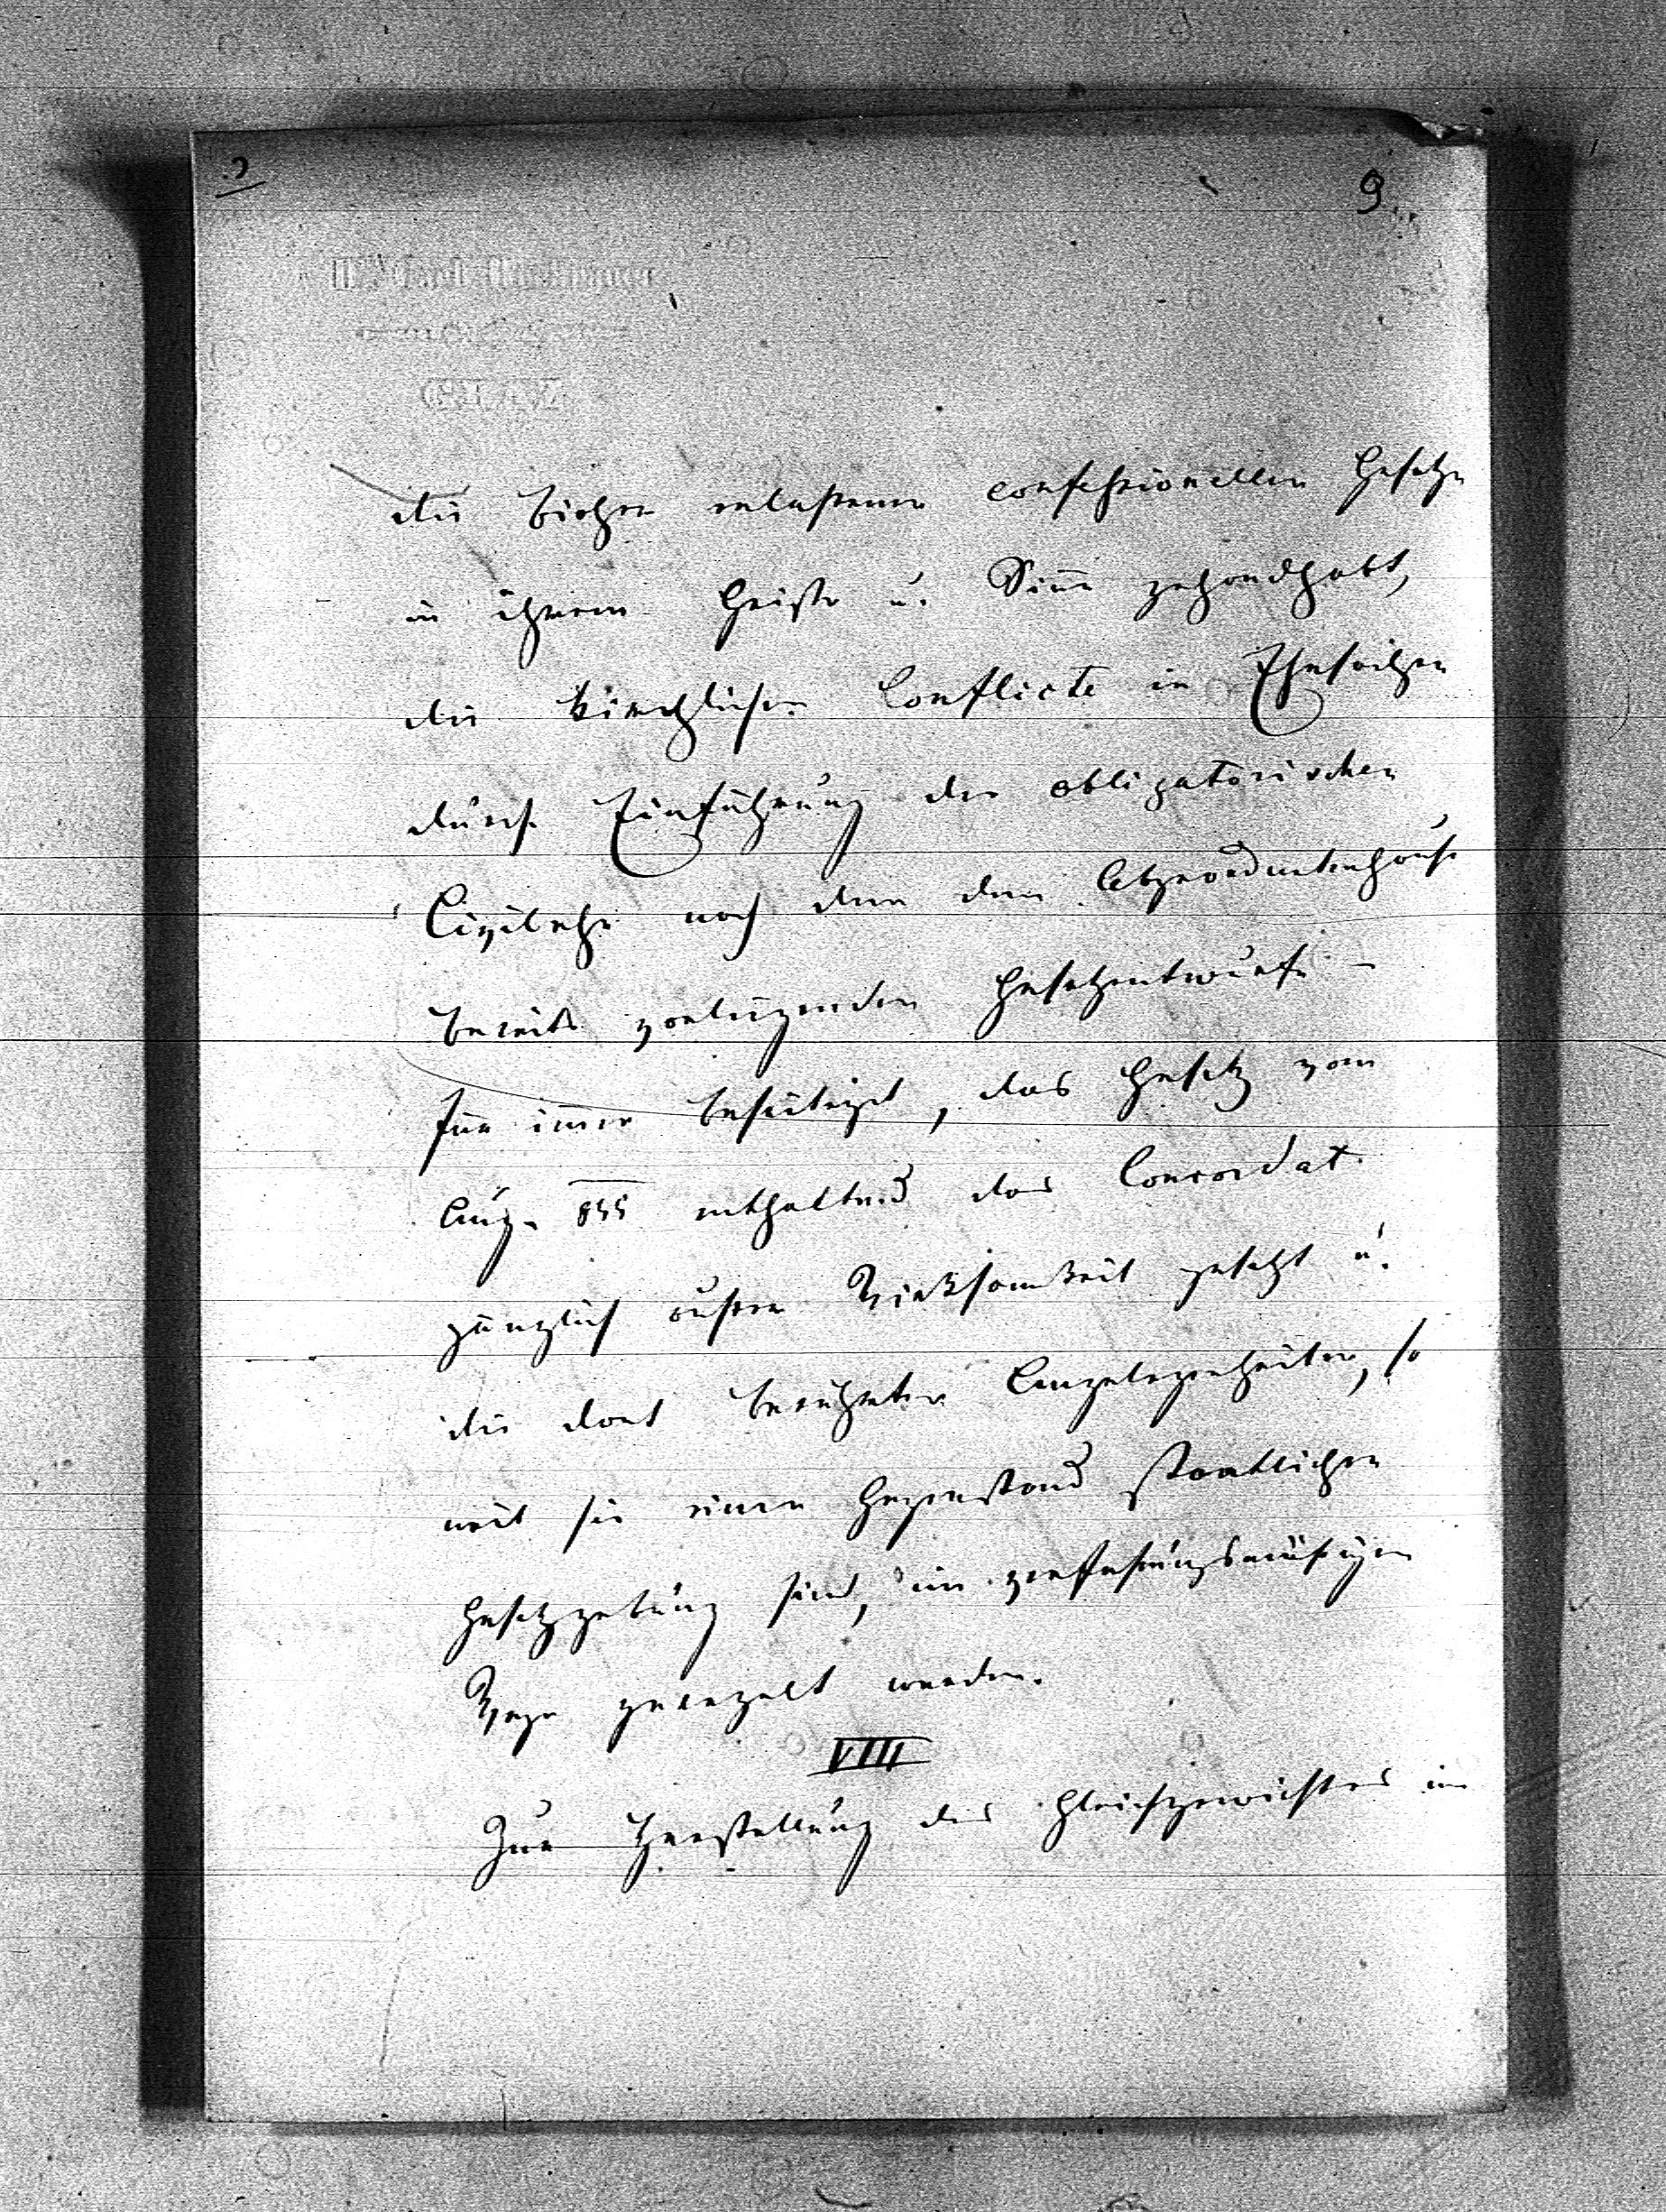 9
die bisher erlassenen confessionellen Gesetze
in ihrem Geiste u. Sinn gehandhabt,
die kirchlichen Conflicte in Ehesachen
durch Einführung der obligatorischen
Civilehe nach dem dem Abgeordnetenhause
bereits vorliegenden Gesetzentwurfe –
für immer beseitigt, das Gesetz vom
Aug. 855 enthaltend das Concordat
gänzlich außer Wirksamkeit gesetzt u.
die dort berührten Angelegenheiten, so
weit sie einen Gegenstand staatlicher
Gesetzgebung sind, im verfassungsmäßigen
Wege geregelt werden.
VIII
Zur Herstellung des Gleichgewichtes im